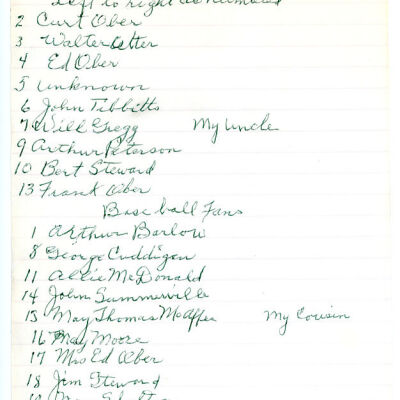 Left to right as numbered
2 Curt Ober
3 Walter Etter
4 Ed Ober
5 unknown
6 John Tibbitts
7 Will Gregg My Uncle
9 Arthur Peterson
10 Bert Steward
13 Frank Ober
Base ball Fans
1 Arthur Barlow
8 George Cuddigan
11 Allie McDonald
14 John Summerville
15 May Thomas McAffee My Cousin
16 May Moore
17 Mrs Ed Ober
18 Jim Steward
19